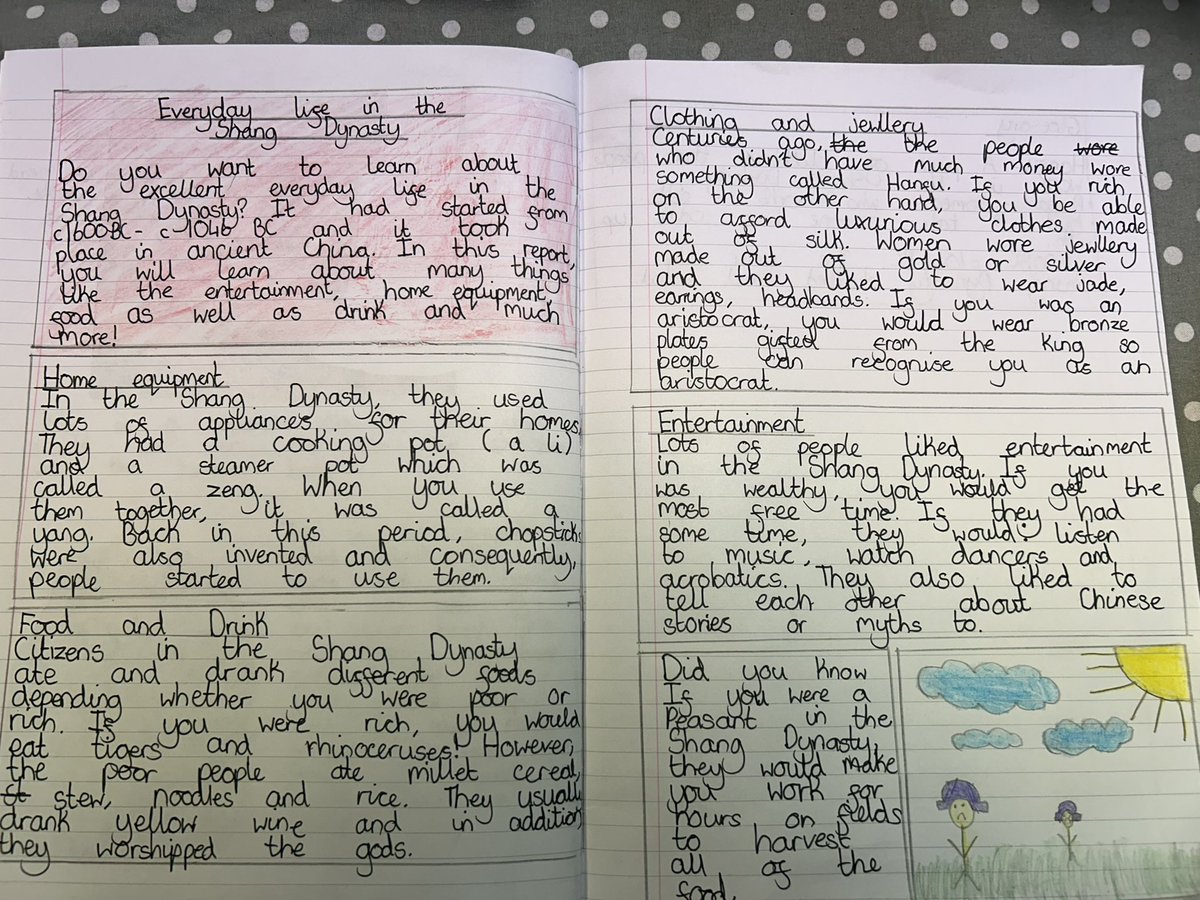 Everyday life in the
Shang Dynasty
Do you want to learn about
the excellent everyday life in the
Shang Dynasty? It had started from
c1600BC- c 1046 BC and it took
place in ancient China. In this report,
you will learn about many things
like the entertainment, home equipment,
food as well as drink and much
more!
Home equipment
In the Shang Dynasty, they used
lots of appliances for their homes.
They had a cooking pot (a li)
and a steamer pot which was
called a zeng. When you use
them together, it was called a
yang. Back in this period, chopsticks
were also invented and consequently,
people started to use them.
Food and Drink
Citizens in the Shang Dynasty
ate and drank different foods
depending whether you were poor or
rich. If you were rich, you would
eat tigers and rhinoceruses! However,
the poor people ate millet cereal,
st stew, noodles and rice. They usually
drank yellow wine and in addition,
they worshipped the gods.
Clothing and jewllery
Centuries ago, the the people wore
who didn't have much money wore
something called Hanfu. If you rich,
on the other hand, you be able
to afford luxurious clothes made
out of silk. Women wore jewllery
made out of gold or silver
and they liked to wear jade,
earrings, headbands. If you was an
aristocrat, you would wear bronze
plates gifted from the king so
people can recognise you as an
aristocrat.
Entertainment
Lots of people liked entertainment
in the Shang Dynasty. If you
was wealthy, you would get the
most free time. If they had
some time, they would listen
to music, watch dancers and
acrobatics. They also liked to
tell each other about Chinese
stories or myths to.
Did you know
If you were a
Peasant in the
Shang Dynasty,
they would make
you work for
hours on fields
to harvest
all of the
food.